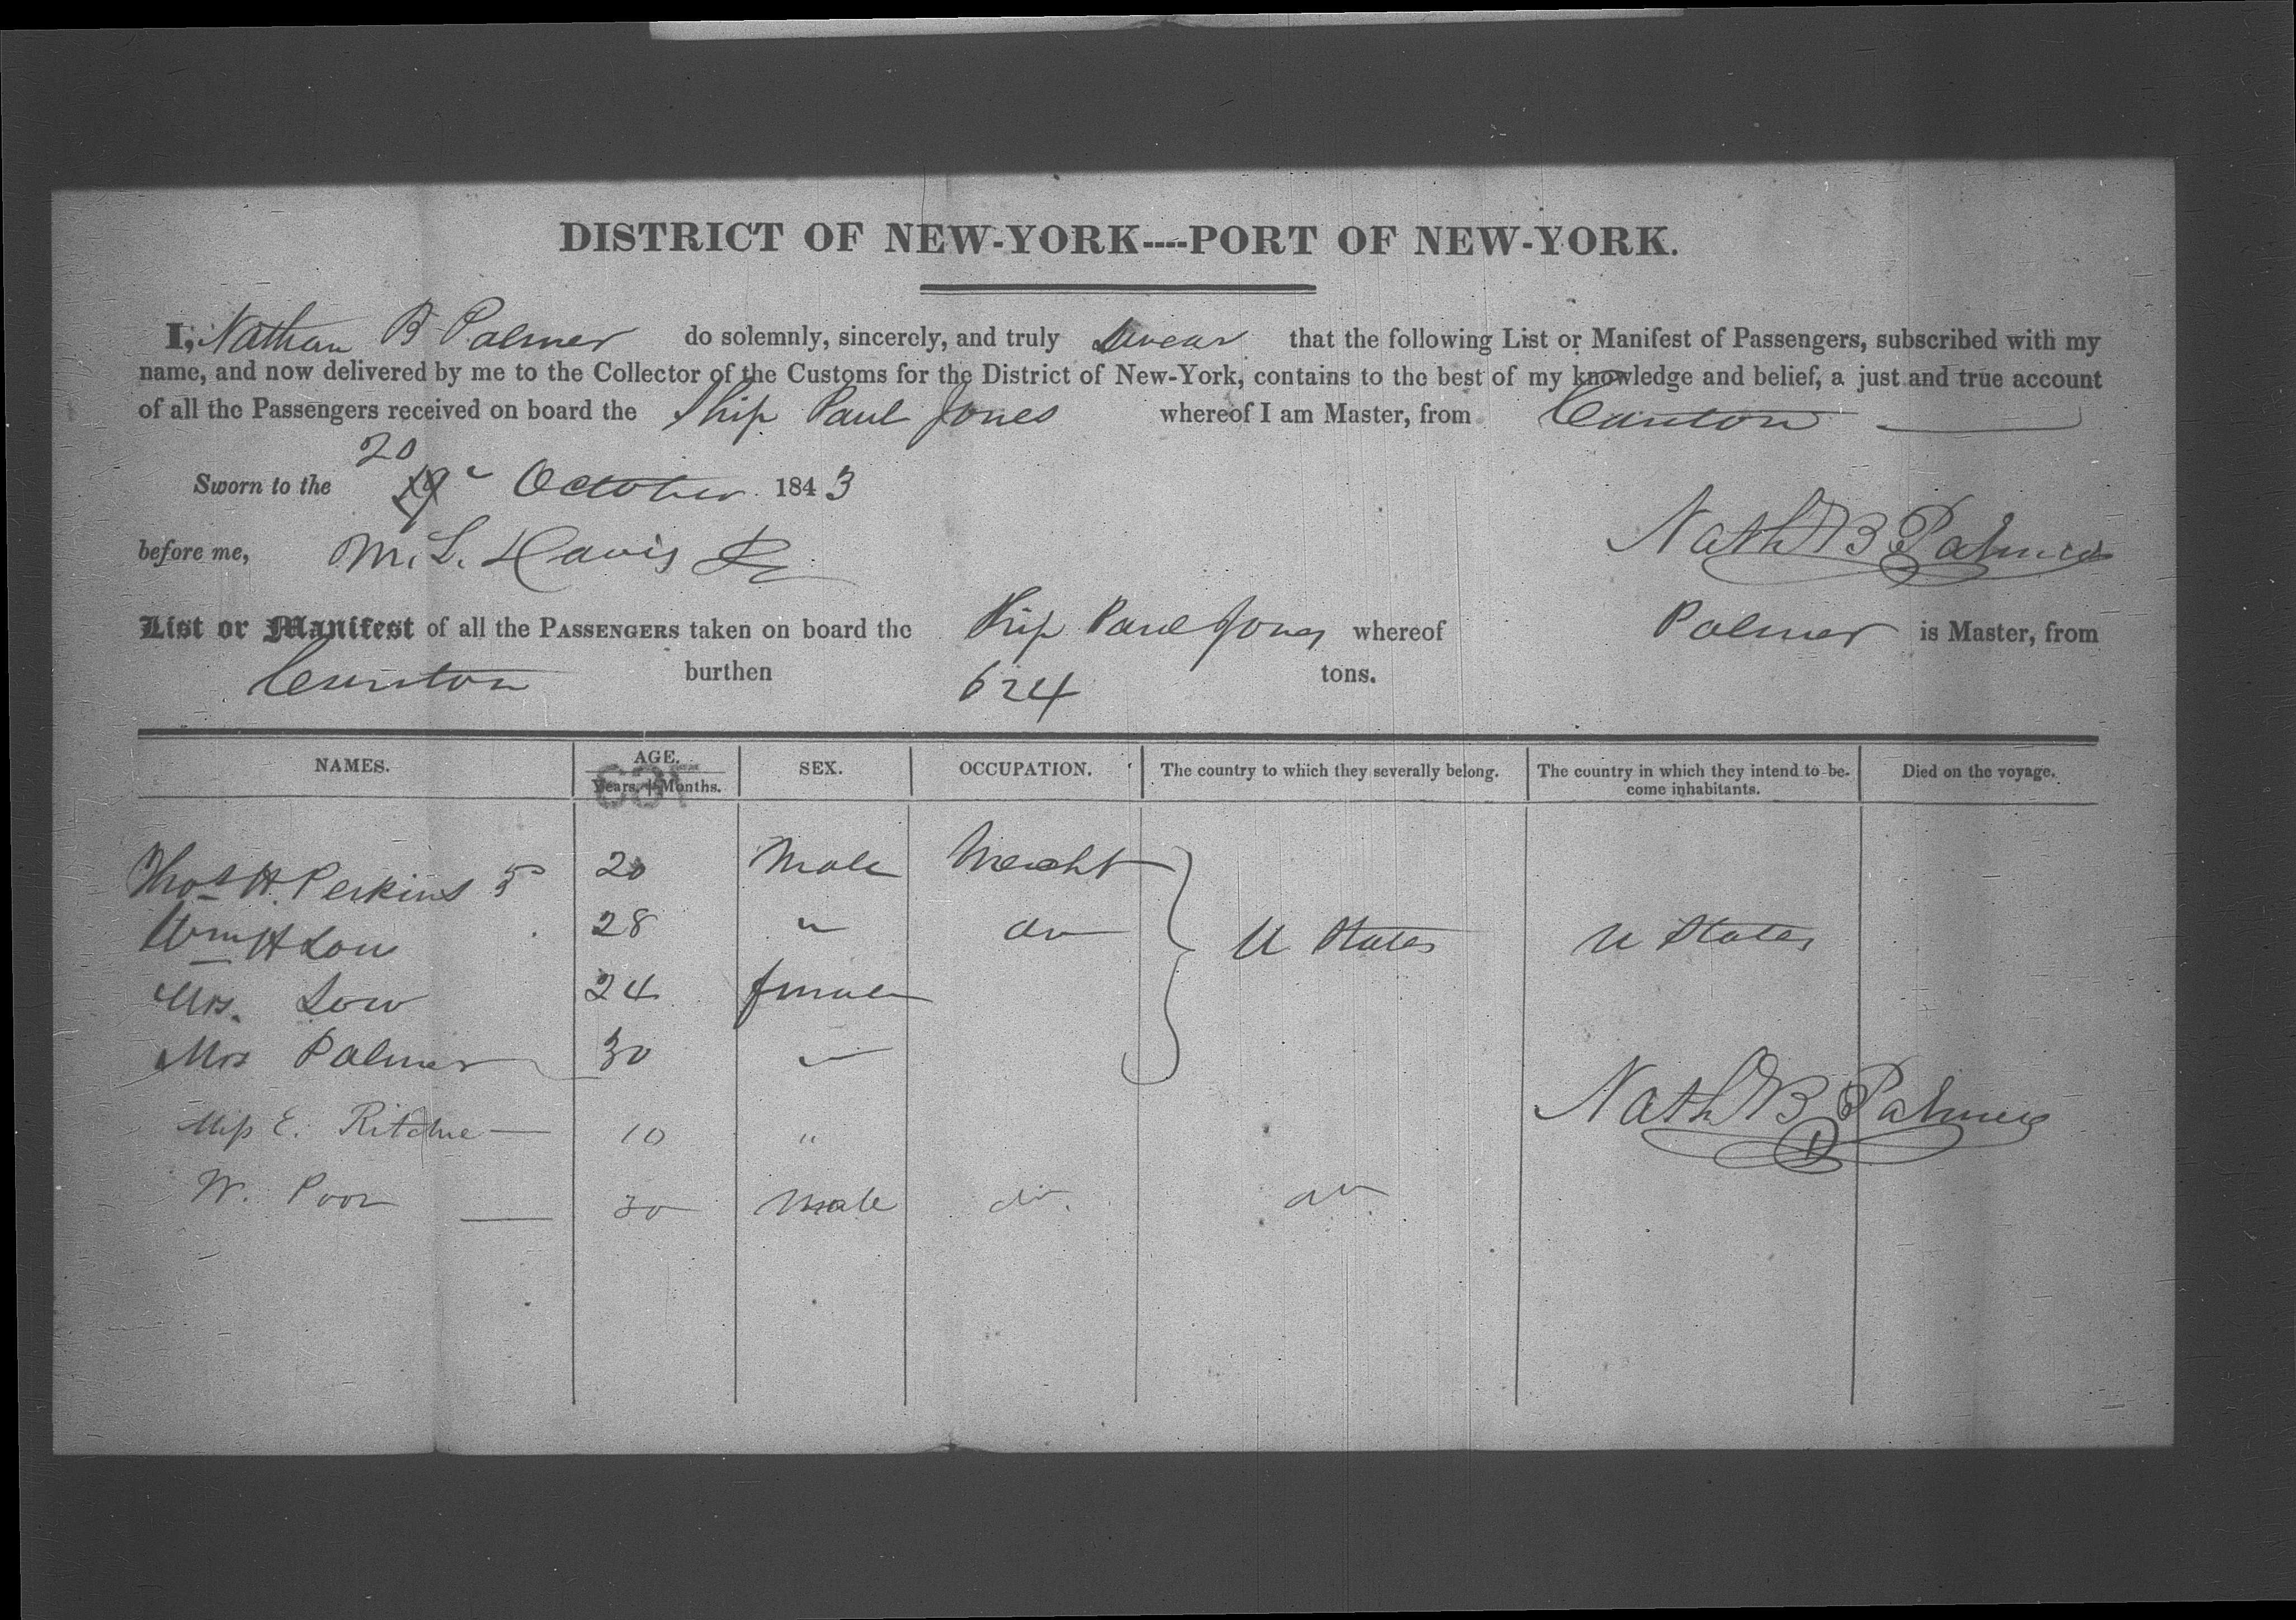 DISTRICT OF NEW-YORK----PORT OF NEW-YORK.
I, Nathan B Palmer do solemnly, sincerely, and truly Swear that the following List or Manifest of Passengers, subscribed with my
name, and now delivered by me to the Collector of the Customs for the District of New-York, contains to the best of my knowledge and belief, a just and true account
of all the Passengers received on board the Ship Paul Jones whereof I am Master, from Canton
20
Sworn to the 19 October 1843
Nath B Palmer
before me, M. L. Davis
List or Manifest of all the PASSENGERS taken on board the Ship Paul Jones whereof Palmer is Master, from
Canton burthen 624 tons.
NAMES. AGE. Years. Months. SEX. OCCUPATION. The country to which they severally belong. The country in which they intend to become inhabitants. Died on the voyage.
Thos H. Perkins 20 Male Mercht
Wm H Low 28 " do U States U States
Mrs. Low 24 female
Mrs Palmer 30 "
Nath B Palmer
Miss E. Ritchie 10 "
W. Poor 30 Male do do